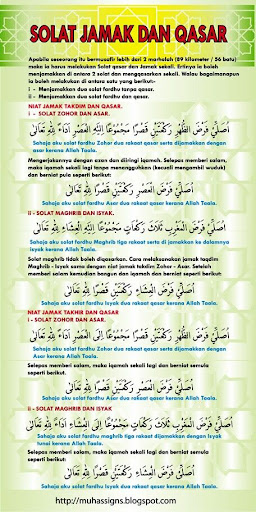 SOLAT JAMAK DAN QASAR
Apabila seseorang itu bermusafir lebih dari 2 marhalah (89 kilometer / 56 batu)
maka ia harus melakukan Solat qasar dan Jamak sekali. Ertinya ia boleh
menjamakkan di antara 2 solat dan mengqasarkan sekali. Walau bagaimanapun
ia boleh melakukan di antara satu yang berikut:-
i - Menjamakkan dua solat fardhu tanpa qasar.
ii - Menjamakkan dua solat fardhu dan qasar.
NIAT JAMAK TAKDIM DAN QASAR.
i - SOLAT ZOHOR DAN ASAR.
أُصَلِّيْ فَرْضَ الظُّهْرِ رَكْعَتَيْنِ قَصْرًا مَجْمُوْعًا إِلَيْهِ الْعَصْرُ أَدَاءً لِلّٰهِ تَعَالَى
Sahaja aku solat fardhu Zohor dua rakaat qasar serta dijamakkan dengan
asar kerana Allah Taala.
Mengerjakannya dengan azan dan diiringi iqamah. Selepas memberi salam,
maka iqamah sekali lagi tanpa menangguhkan (kecuali mengambil wuduk)
dan berniat pula seperti berikut.
أُصَلِّيْ فَرْضَ الْعَصْرِ رَكْعَتَيْنِ قَصْرًا لِلّٰهِ تَعَالَى
ii - SOLAT MAGHRIB DAN ISYAK.
أُصَلِّيْ فَرْضَ الْمَغْرِبِ ثَلَاثَ رَكَعَاتٍ مَجْمُوْعًا إِلَيْهِ الْعِشَاءُ لِلّٰهِ تَعَالَى
Sahaja aku solat fardhu Maghrib tiga rakaat serta di jamakkan ke dalamnya
isyak kerana Allah Taala.
Solat maghrib tidak boleh diqasarkan. Cara melaksanakan jamak taqdim
Maghrib - Isyak sama dengan niat jamak takdim Zohor - Asar. Setelah
memberi salam kemudian bangun dan iqamah dan berniat seperti berikut.
أُصَلِّيْ فَرْضَ الْعِشَاءِ رَكْعَتَيْنِ قَصْرًا لِلّٰهِ تَعَالَى
NIAT JAMAK TAKHIR DAN QASAR
i - SOLAT ZOHOR DAN ASAR.
أُصَلِّيْ فَرْضَ الظُّهْرِ رَكْعَتَيْنِ قَصْرًا مَجْمُوْعًا إِلَى الْعَصْرِ أَدَاءً لِلّٰهِ تَعَالَى
Sahaja aku solat fardhu Zohor dua rakaat qasar serta dijamakkan dengan
Asar kerana Allah Taala.
Selepas memberi salam, maka iqamah sekali lagi dan berniat semula
seperti berikut:
أُصَلِّيْ فَرْضَ الْعَصْرِ رَكْعَتَيْنِ قَصْرًا لِلّٰهِ تَعَالَى
ii - SOLAT MAGHRIB DAN ISYAK.
أُصَلِّيْ فَرْضَ الْمَغْرِبِ ثَلَاثَ رَكَعَاتٍ مَجْمُوْعًا إِلَى الْعِشَاءِ أَدَاءً لِلّٰهِ تَعَالَى
Sahaja aku solat fardhu maghrib tiga rakaat dijamakkan serta dengan Isyak
tunai kerana Allah Taala.
Selepas memberi salam, maka iqamah lagi dan berniat semula
seperti berikut:
أُصَلِّيْ فَرْضَ الْعِشَاءِ رَكْعَتَيْنِ قَصْرًا لِلّٰهِ تَعَالَى
http://muhassigns.blogspot.com